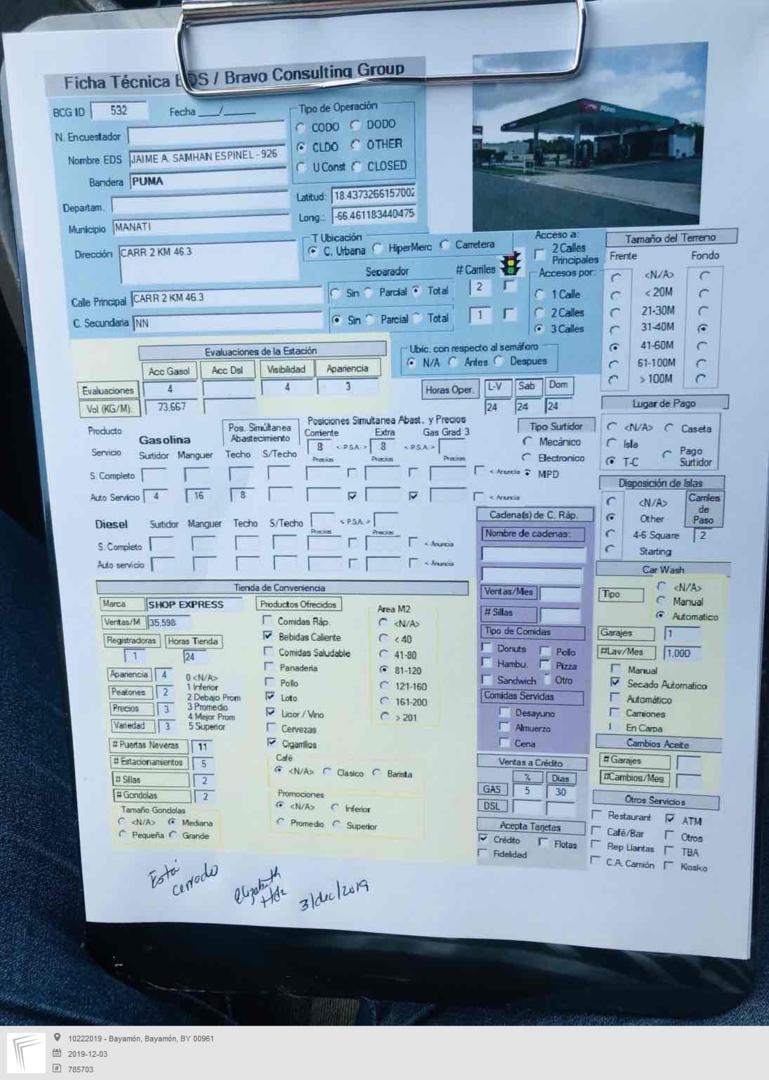 Ficha Técnica EDS / Bravo Consulting Group
BCG ID 532 Fecha __/____
Tipo de Operación
CODO DODO
CLDO OTHER
U Const CLOSED
N. Encuestador
Nombre EDS JAIME A. SAMHAN ESPINEL - 926
Bandera PUMA
Departam.
Municipio MANATI
Latitud: 18.4373266157002
Long.: -66.461183440475
Dirección CARR 2 KM 46.3
T Ubicación
C. Urbana HiperMerc Carretera
Acceso a:
2 Calles Principales
Separador # Carriles
Calle Principal CARR 2 KM 46.3 Sin Parcial Total 2
C. Secundaria NN Sin Parcial Total 1
Accesos por:
1 Calle
2 Calles
3 Calles
Tamaño del Terreno
Frente Fondo
<N/A>
< 20M
21-30M
31-40M
41-60M
61-100M
> 100M
Evaluaciones de la Estación
Acc Gasol Acc Dsl Visibilidad Apariencia
Evaluaciones 4 4 3
Vol (KG/M): 73,667
Ubic. con respecto al semáforo
N/A Antes Despues
Horas Oper. L-V Sab Dom
24 24 24
Lugar de Pago
<N/A> Caseta
Isla
T-C Pago Surtidor
Producto Gasolina
Pos. Simúltanea Abastecimiento
Posiciones Simultanea Abast. y Precios
Corriente Extra Gas Grad 3
8 < P.S.A. > 8 < P.S.A. >
Servicio Surtidor Manguer Techo S/Techo Precios Precios Precios
S. Completo < Anuncia
Auto Servicio 4 16 8 < Anuncia
Tipo Surtidor
Mecánico
Electronico
MPD
Disposición de Islas
<N/A>
Other
4-6 Square
Starting
Carriles de Paso
2
Diesel Surtidor Manguer Techo S/Techo < P.S.A. >
Precios Precios
S. Completo < Anuncia
Auto servicio < Anuncia
Cadena(s) de C. Ráp.
Nombre de cadenas:
Ventas/Mes
# Sillas
Tipo de Comidas
Donuts Pollo
Hambu. Pizza
Sandwich Otro
Comidas Servidas
Desayuno
Almuerzo
Cena
Car Wash
Tipo
<N/A>
Manual
Automatico
Garajes 1
#Lav/Mes 1,000
Manual
Secado Automatico
Automático
Camiones
En Carpa
Cambios Aceite
# Garajes
#Cambios/Mes
Tienda de Conveniencia
Marca SHOP EXPRESS
Ventas/M 35,598
Registradoras Horas Tienda
1 24
Apariencia 4
Peatones 2
Precios 3
Variedad 3
0 <N/A>
1 Inferior
2 Debajo Prom
3 Promedio
4 Mejor Prom
5 Superior
# Puertas Neveras 11
# Estacionamientos 5
# Sillas 2
# Gondolas 2
Tamaño Gondolas
<N/A> Mediana
Pequeña Grande
Productos Ofrecidos
Comidas Ráp.
Bebidas Caliente
Comidas Saludable
Panaderia
Pollo
Loto
Licor / Vino
Cervezas
Cigarrillos
Area M2
<N/A>
< 40
41-80
81-120
121-160
161-200
> 201
Café
<N/A> Clasico Barista
Promociones
<N/A> Inferior
Promedio Superior
Ventas a Crédito
% Dias
GAS 5 30
DSL
Acepta Tarjetas
Crédito Flotas
Fidelidad
Otros Servicios
Restaurant ATM
Café/Bar Otros
Rep Llantas TBA
C.A. Camión Kiosko
Está cerrado
Elizabeth
3/dec/2019
10222019 - Bayamón, Bayamón, BY 00961
2019-12-03
785703